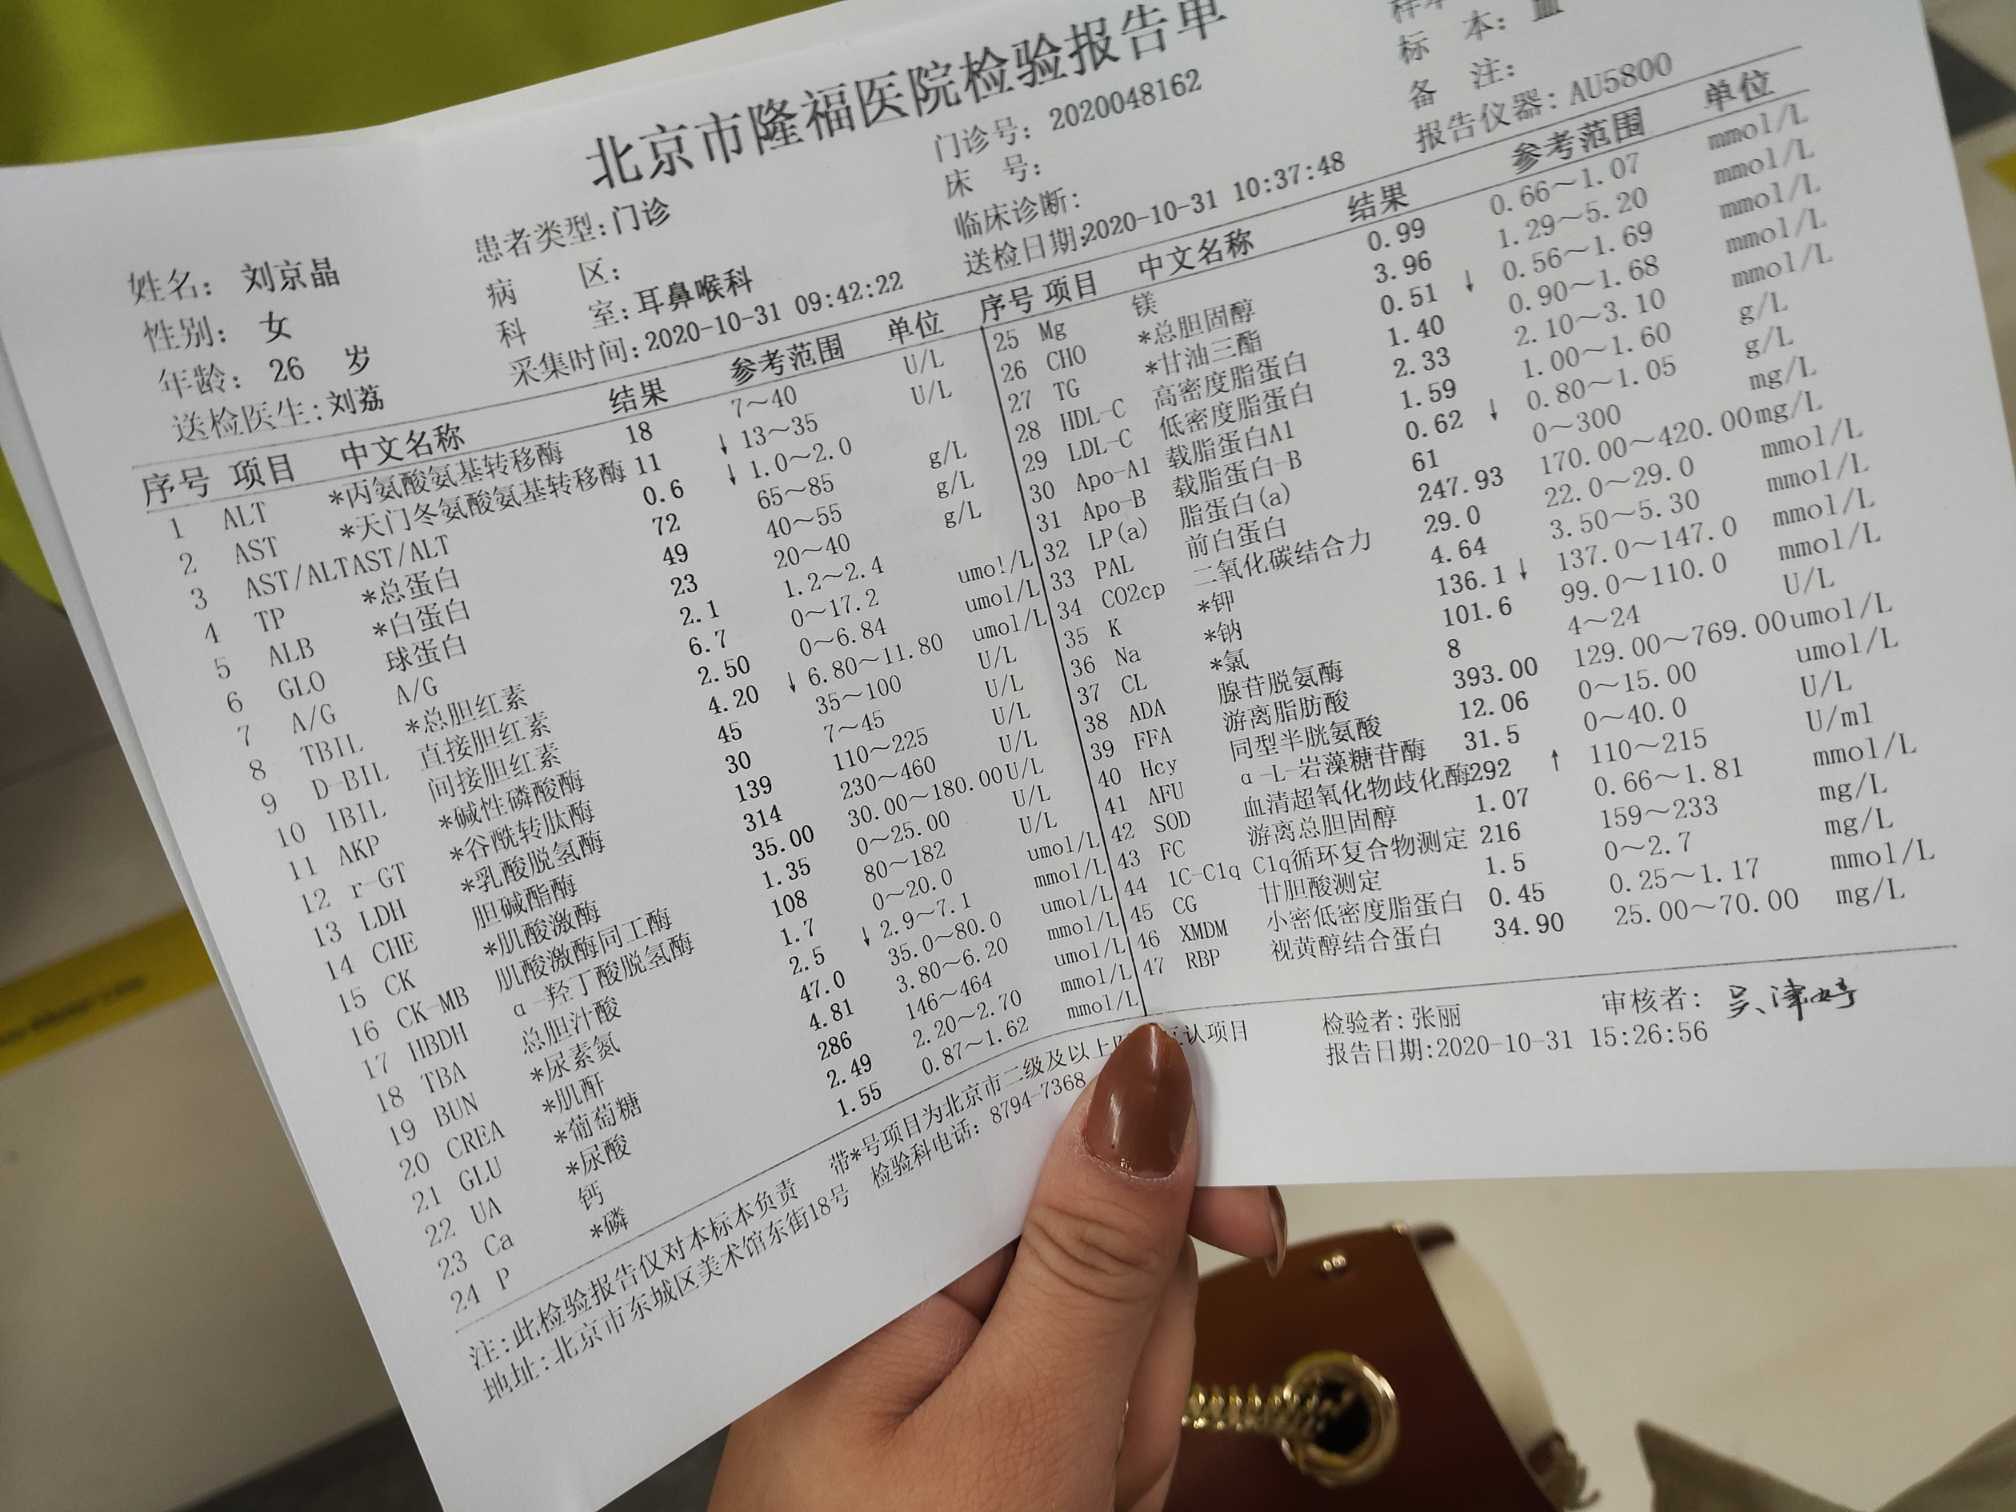 北京市隆福医院检验报告单
姓名: 刘京晶
性别: 女
年龄: 26 岁
送检医生:刘荔
患者类型:门诊
病 区:
科 室:耳鼻喉科
采集时间:2020-10-31 09:42:22
门诊号: 2020048162
床 号:
临床诊断:
送检日期:2020-10-31 10:37:48
标 本: 血
备 注:
报告仪器: AU5800
序号 项目 中文名称 结果 参考范围 单位
1 ALT *丙氨酸氨基转移酶 18 7~40 U/L
2 AST *天门冬氨酸氨基转移酶 11 ↓ 13~35 U/L
3 AST/ALT AST/ALT 0.6 ↓ 1.0~2.0
4 TP *总蛋白 72 65~85 g/L
5 ALB *白蛋白 49 40~55 g/L
6 GLO 球蛋白 23 20~40 g/L
7 A/G A/G 2.1 1.2~2.4
8 TBIL *总胆红素 6.7 0~17.2 umol/L
9 D-BIL 直接胆红素 2.50 0~6.84 umol/L
10 IBIL 间接胆红素 4.20 ↓ 6.80~11.80 umol/L
11 AKP *碱性磷酸酶 45 35~100 U/L
12 r-GT *谷酰转肽酶 30 7~45 U/L
13 LDH *乳酸脱氢酶 139 110~225 U/L
14 CHE 胆碱酯酶 314 230~460 U/L
15 CK *肌酸激酶 35.00 30.00~180.00 U/L
16 CK-MB 肌酸激酶同工酶 1.35 0~25.00 U/L
17 HBDH α-羟丁酸脱氢酶 108 80~182 U/L
18 TBA 总胆汁酸 1.7 0~20.0 umol/L
19 BUN *尿素氮 2.5 ↓ 2.9~7.1 mmol/L
20 CREA *肌酐 47.0 35.0~80.0 umol/L
21 GLU *葡萄糖 4.81 3.80~6.20 mmol/L
22 UA *尿酸 286 146~464 umol/L
23 Ca 钙 2.49 2.20~2.70 mmol/L
24 P *磷 1.55 0.87~1.62 mmol/L
序号 项目 中文名称 结果 参考范围 单位
25 Mg 镁 0.99 0.66~1.07 mmol/L
26 CHO *总胆固醇 3.96 1.29~5.20 mmol/L
27 TG *甘油三酯 0.51 ↓ 0.56~1.69 mmol/L
28 HDL-C 高密度脂蛋白 1.40 0.90~1.68 mmol/L
29 LDL-C 低密度脂蛋白 2.33 2.10~3.10 mmol/L
30 Apo-A1 载脂蛋白A1 1.59 1.00~1.60 g/L
31 Apo-B 载脂蛋白-B 0.62 ↓ 0.80~1.05 g/L
32 LP(a) 脂蛋白(a) 61 0~300 mg/L
33 PAL 前白蛋白 247.93 170.00~420.00 mg/L
34 CO2cp 二氧化碳结合力 29.0 22.0~29.0 mmol/L
35 K *钾 4.64 3.50~5.30 mmol/L
36 Na *钠 136.1 ↓ 137.0~147.0 mmol/L
37 CL *氯 101.6 99.0~110.0 mmol/L
38 ADA 腺苷脱氨酶 8 4~24 U/L
39 FFA 游离脂肪酸 393.00 129.00~769.00 umol/L
40 Hcy 同型半胱氨酸 12.06 0~15.00 umol/L
41 AFU α-L-岩藻糖苷酶 31.5 0~40.0 U/L
42 SOD 血清超氧化物歧化酶 292 ↑ 110~215 U/ml
43 FC 游离总胆固醇 1.07 0.66~1.81 mmol/L
44 1C-C1q C1q循环复合物测定 216 159~233 mg/L
45 CG 甘胆酸测定 1.5 0~2.7 mg/L
46 XMDM 小密低密度脂蛋白 0.45 0.25~1.17 mmol/L
47 RBP 视黄醇结合蛋白 34.90 25.00~70.00 mg/L
注:此检验报告仅对本标本负责 带*号项目为北京市二级及以上 互认项目
检验者:张丽 审核者: 吴津婷
地址:北京市东城区美术馆东街18号 检验科电话: 8794-7368
报告日期:2020-10-31 15:26:56